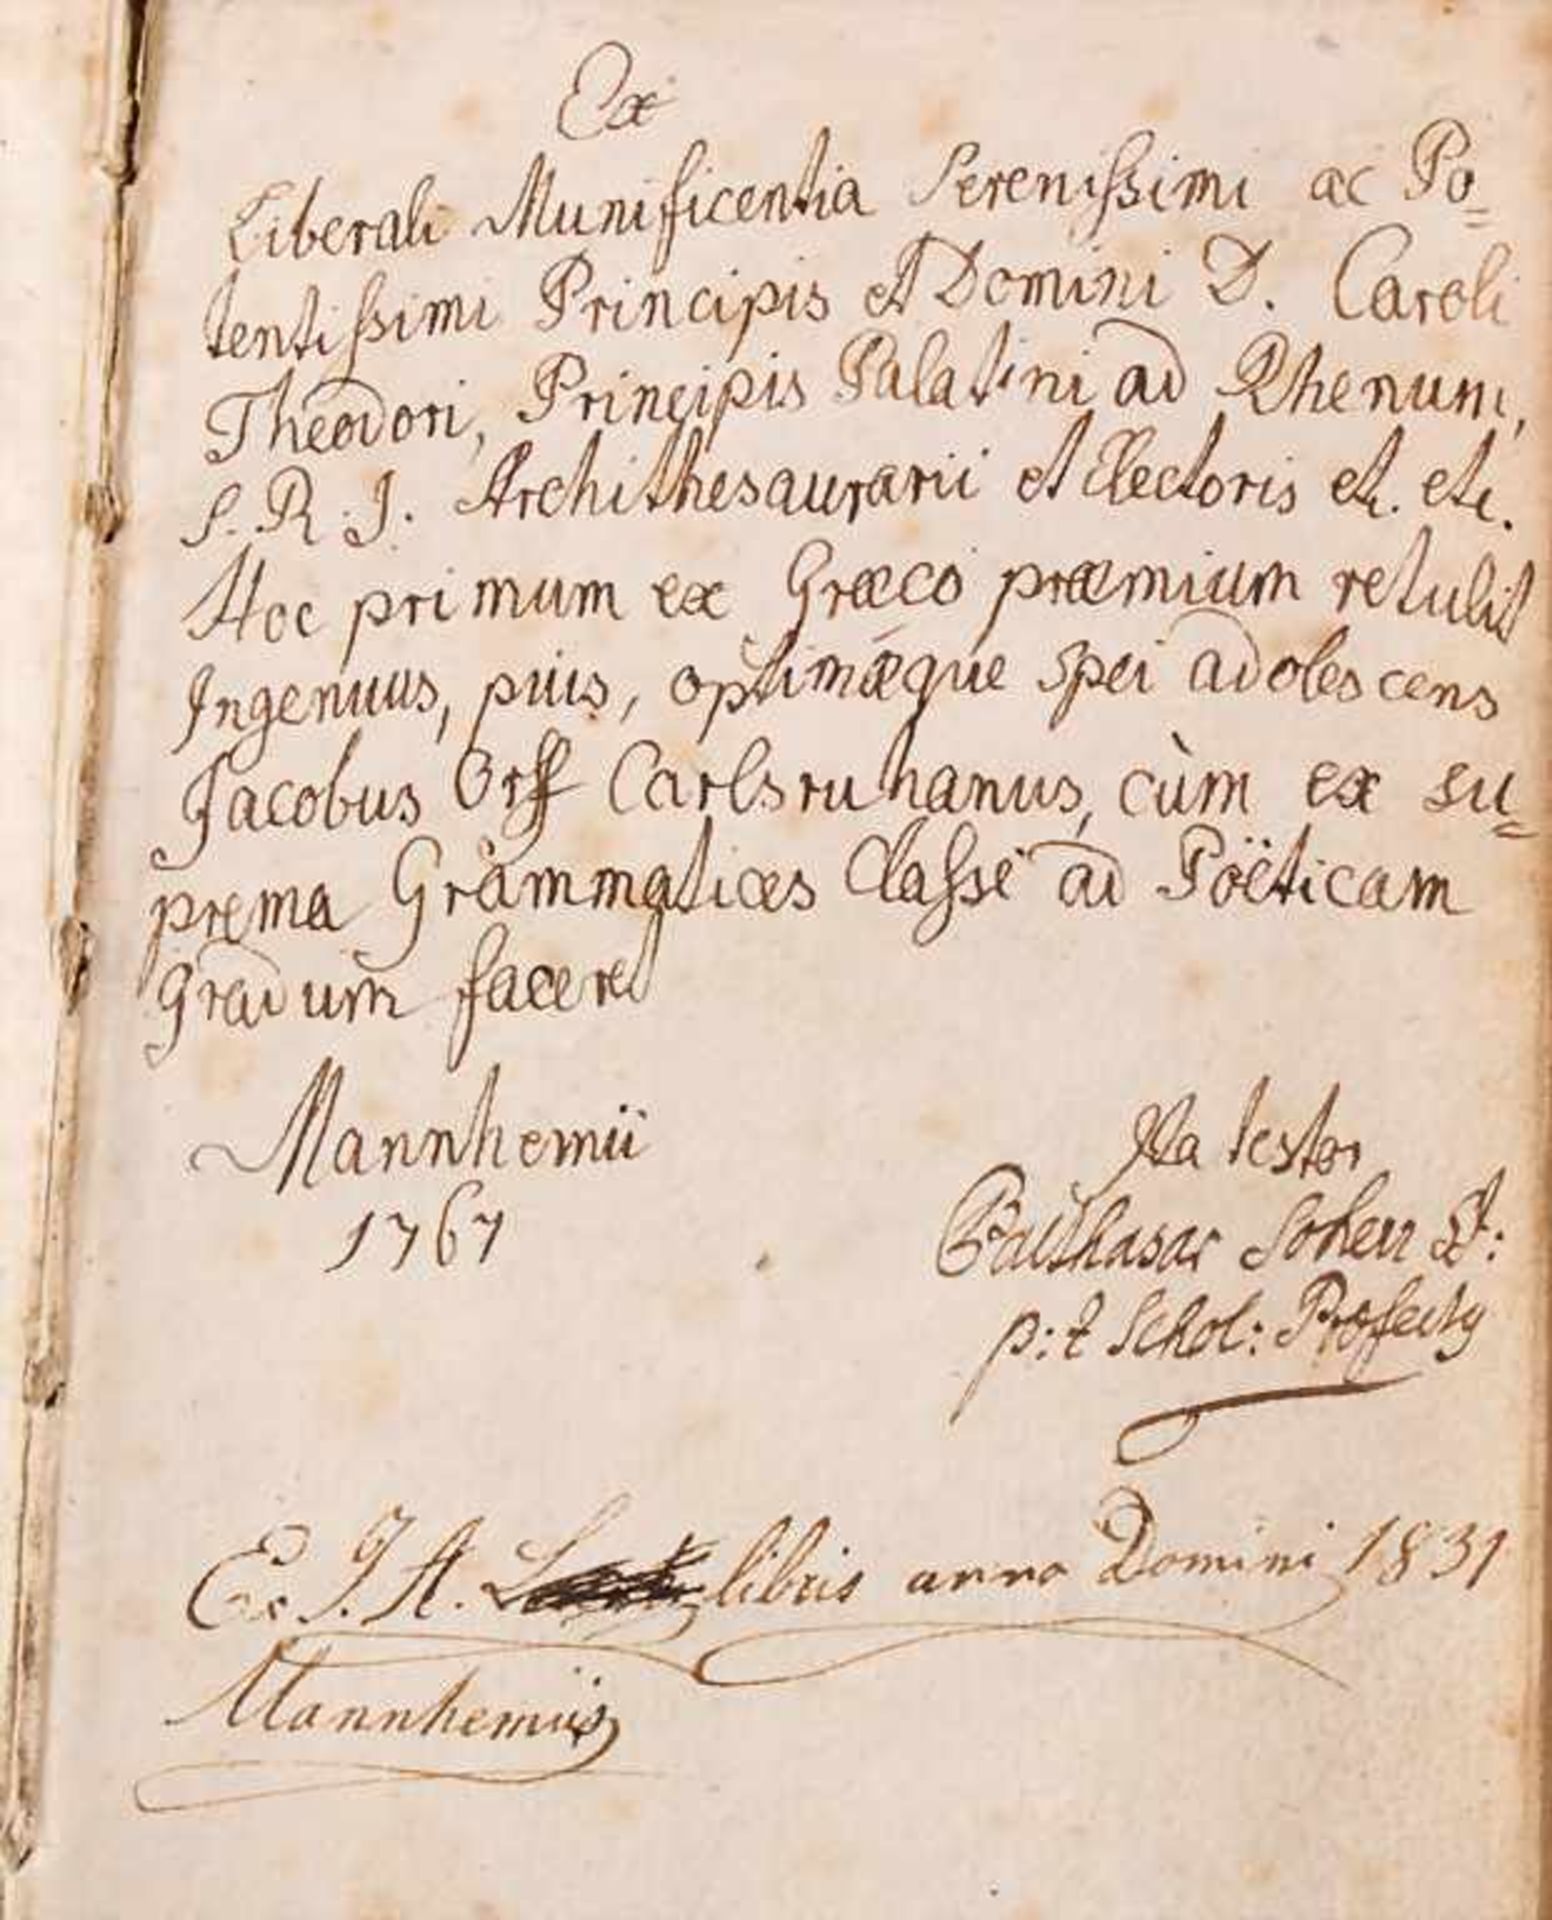 Ex
Liberali Munificentia Serenissimi ac Po=
tentissimi Principis et Domini D. Caroli
Theodori, Principis Palatini ad Rhenum,
S. R. J. Archithesaurarii et Electoris etc. etc.
Hoc primum ex Græco præmium retulit
Ingenuus, pius, optimæque spei adolescens
Jacobus Orff Carlsruhanus, cùm ex su=
prema Grammatices Classe ad Poëticam
Gradum faceret
Mannhemii
1767
Ita testor
Balthasar
p: t Schol: Præfectus
Ex J. A. libris anno Domini 1831
Mannhemiis